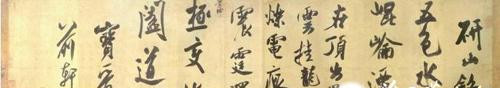 研山銘
五色水
崐崘潭
在頂出
雲挂龍
爍電痕
震霆
極變
闔道
寶
前軒